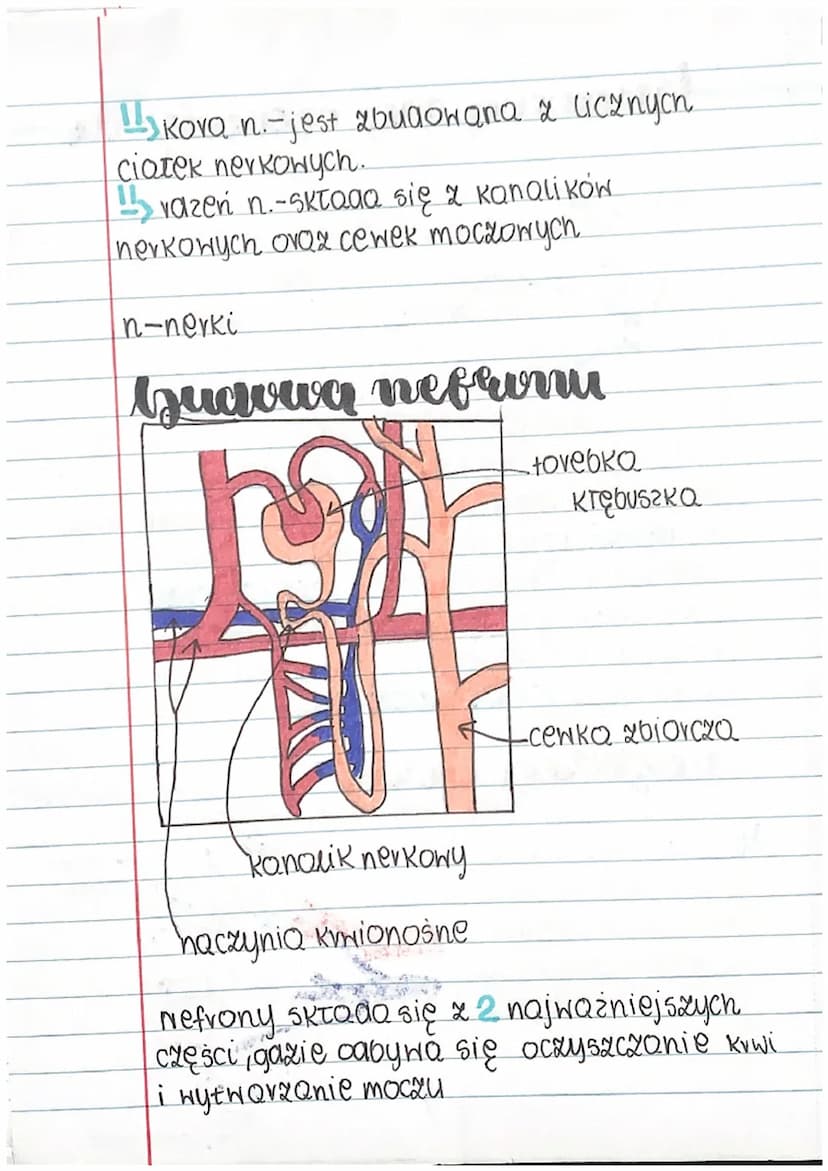 kora n.-jest zbudowana z licznych
ciałek nerkowych.
rdzeń n.-składa się z kanalików
nerkowych oraz cewek moczowych
n-nerki
budowa nefronu
torebka
kłębuszka
cewka zbiorcza
kanalik nerkowy
naczynia krwionośne
nefrony składa się z 2 najważniejszych
części, gdzie odbywa się oczyszczanie krwi
i wytwarzanie moczu